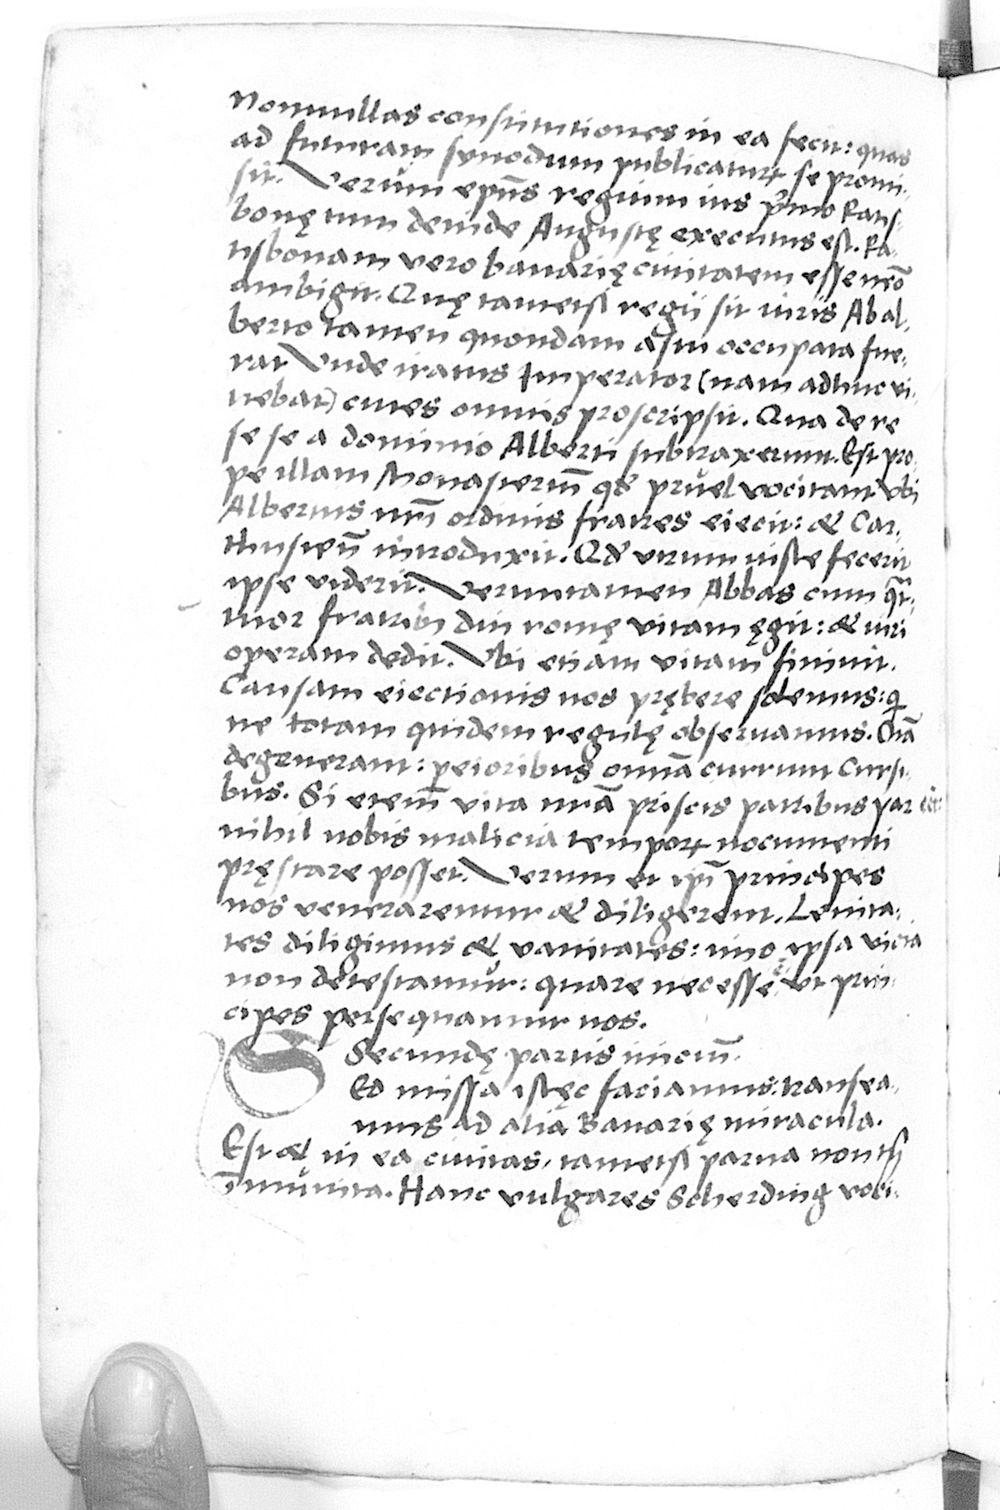 Nonnullas constitutiones in ea fecit: quas
ad futuram synodum publicaturꝝ se promi-
sit. Verum ep̃us regium ius p̃mo Ratis-
bonę tum deinde Augustę executus est. Ra-
tisbonam vero bauarię ciuitatem esse nẽo
ambigit. Quę tametsi regii sit iuris Ab al-
berto tamen quondam astu occupata fue-
rat Vnde iratus Imperator (nam adhuc vi-
uebat) ciues omnis proscripsit. Qua de re
se se a dominio Alberti subtraxerunt. Est pro-
pe illam Monasteriũ qđ prüel vocitant vbi
Albertus nr̃i ordinis fratres eiecit: & Car-
thusien̄ introduxit. Qđ vtrum iuste fecerit
ipse viderit. Veruntamen Abbas cum qua-
tuor fratribꝫ diu romę vitam ęgit: & iuri
operam dedit. Vbi etiam vitam finiuit.
Causam eiectionis nos prębere solemus: qi
ne totam quidem regulę obseruamus. Oĩa
degenerant: peioribus omnia currunt cursi-
bus. Si etem̃ vita nr̃a priscis patribus par eēt:
nihil nobis malicia temporꝝ nocumenti
pręstare posset. Verum et ip̃i principes
nos venerarentur & diligerent. Leuita-
tes diligimus & vanitates: imo ipsa vicia
non detestamur: quare necesse ē vt prin-
cipes persequantur nos.
Secundę partis iniciũ.
SEd missa istęc faciamus: transea-
mus ad alia Bauarię miracula.
Est & in ea ciuitas, tametsi parua non tñ
īmunita. Hanc vulgares Scherding voci-